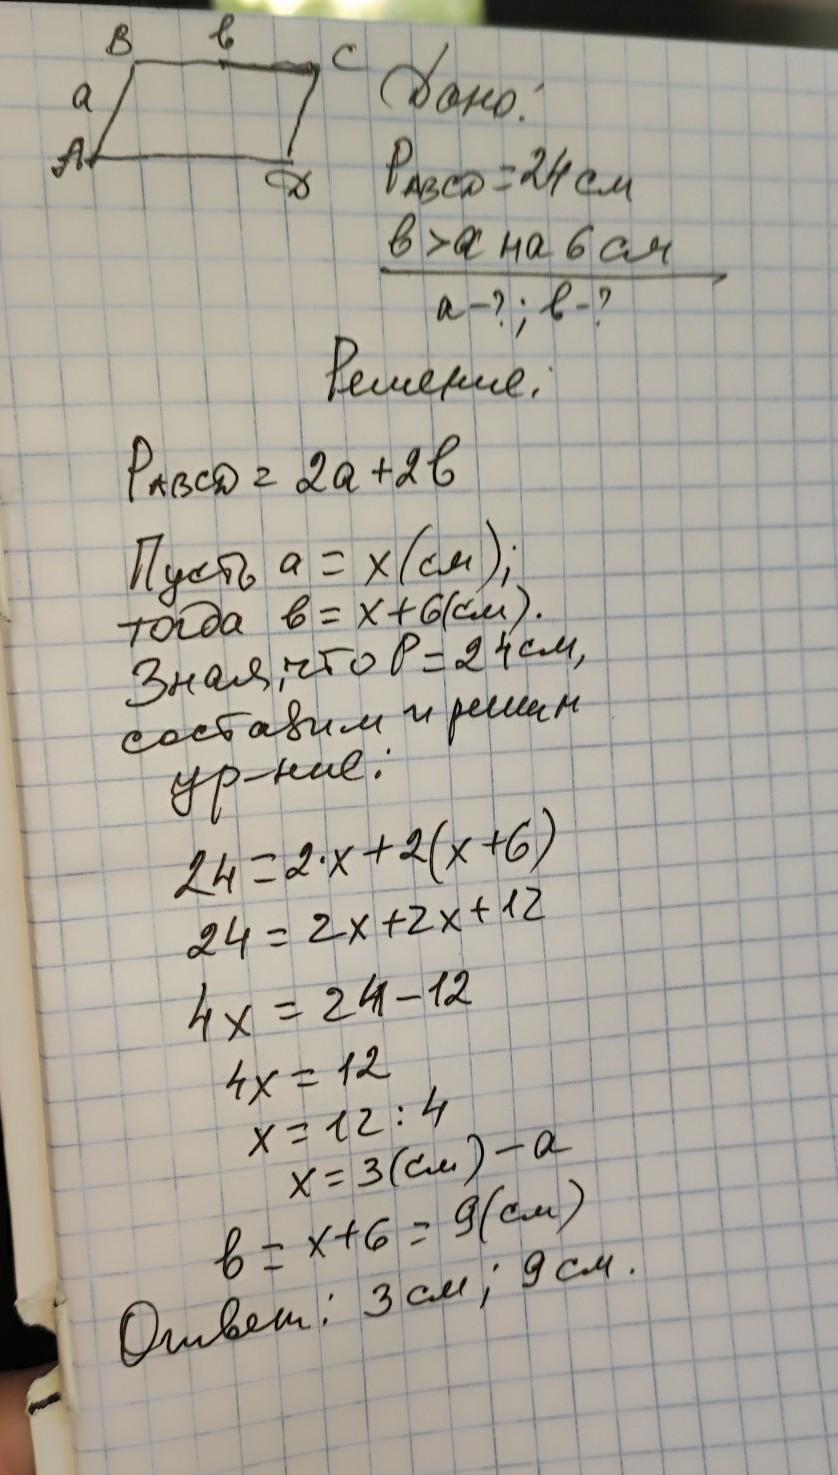 B в C
a
A D
Дано:
PABCD = 24 см
в > a на 6 см
a - ?; в - ?
Решение:
PABCD = 2a + 2в
Пусть a = x (см);
тогда в = x + 6 (см).
Зная, что P = 24 см,
составим и решим
ур-ние:
24 = 2·x + 2(x + 6)
24 = 2x + 2x + 12
4x = 24 - 12
4x = 12
x = 12 : 4
x = 3 (см) - a
в = x + 6 = 9 (см)
Ответ: 3 см; 9 см.